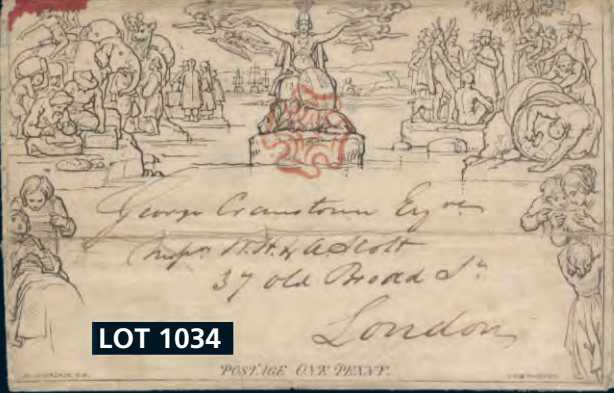 George Cranstoun Esqre
Messrs W. H. & A Scott
37 Old Broad St.
London
LOT 1034
POSTAGE ONE PENNY.